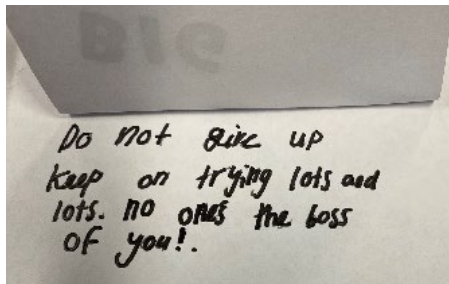 BIG
Do not give up
keep on trying lots and
lots. no one's the boss
of you!.